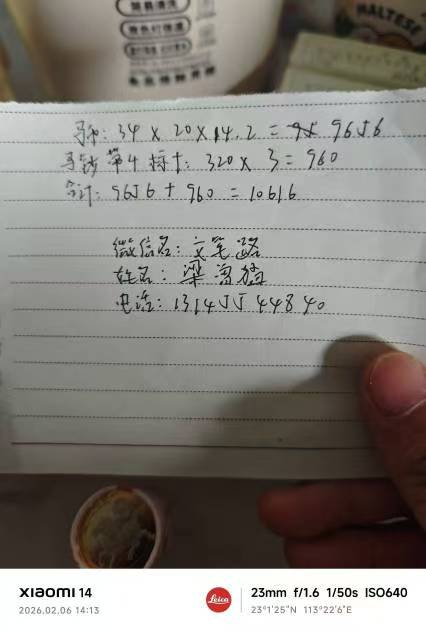 MALTESE
马币: 34 × 20 × 14.2 = 9656
马钞第4标十: 320 × 3 = 960
合计: 9656 + 960 = 10616
微信名: 文笔路
姓名: 梁
电话: 13145544840
XIAOMI 14
2026.02.06 14:13
Leica
23mm f/1.6 1/50s ISO640
23°1'25"N 113°22'6"E